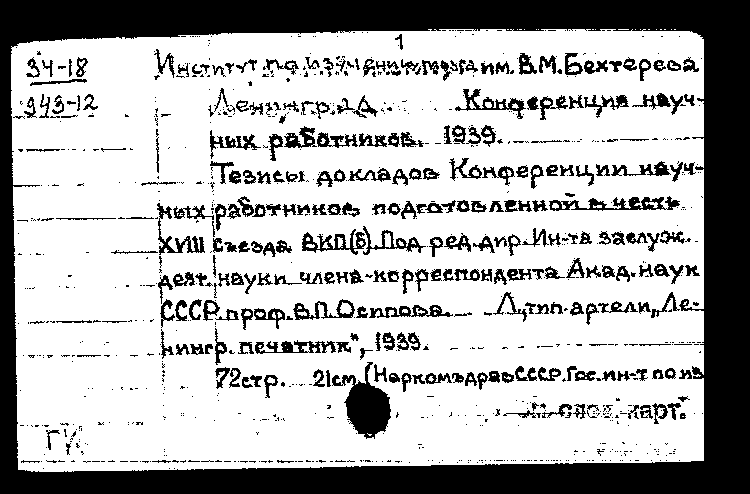 1
34-18 Институт по изучению мозга им. В.М.Бехтерева
343-12 Ленинград. Конференция науч-
ных работников. 1939.
Тезисы докладов Конференции науч-
ных работников, подготовленной в честь
XVIII съезда ВКП(б). Под ред. дир. Ин-та заслуж.
деят. науки члена-корреспондента Акад. наук
СССР проф. В.П. Осипова. Л., тип. артели „Ле-
нингр. печатник", 1939.
72 стр. 21 см. (Наркомздрав СССР. Гос. ин-т по из
см. след. карт.